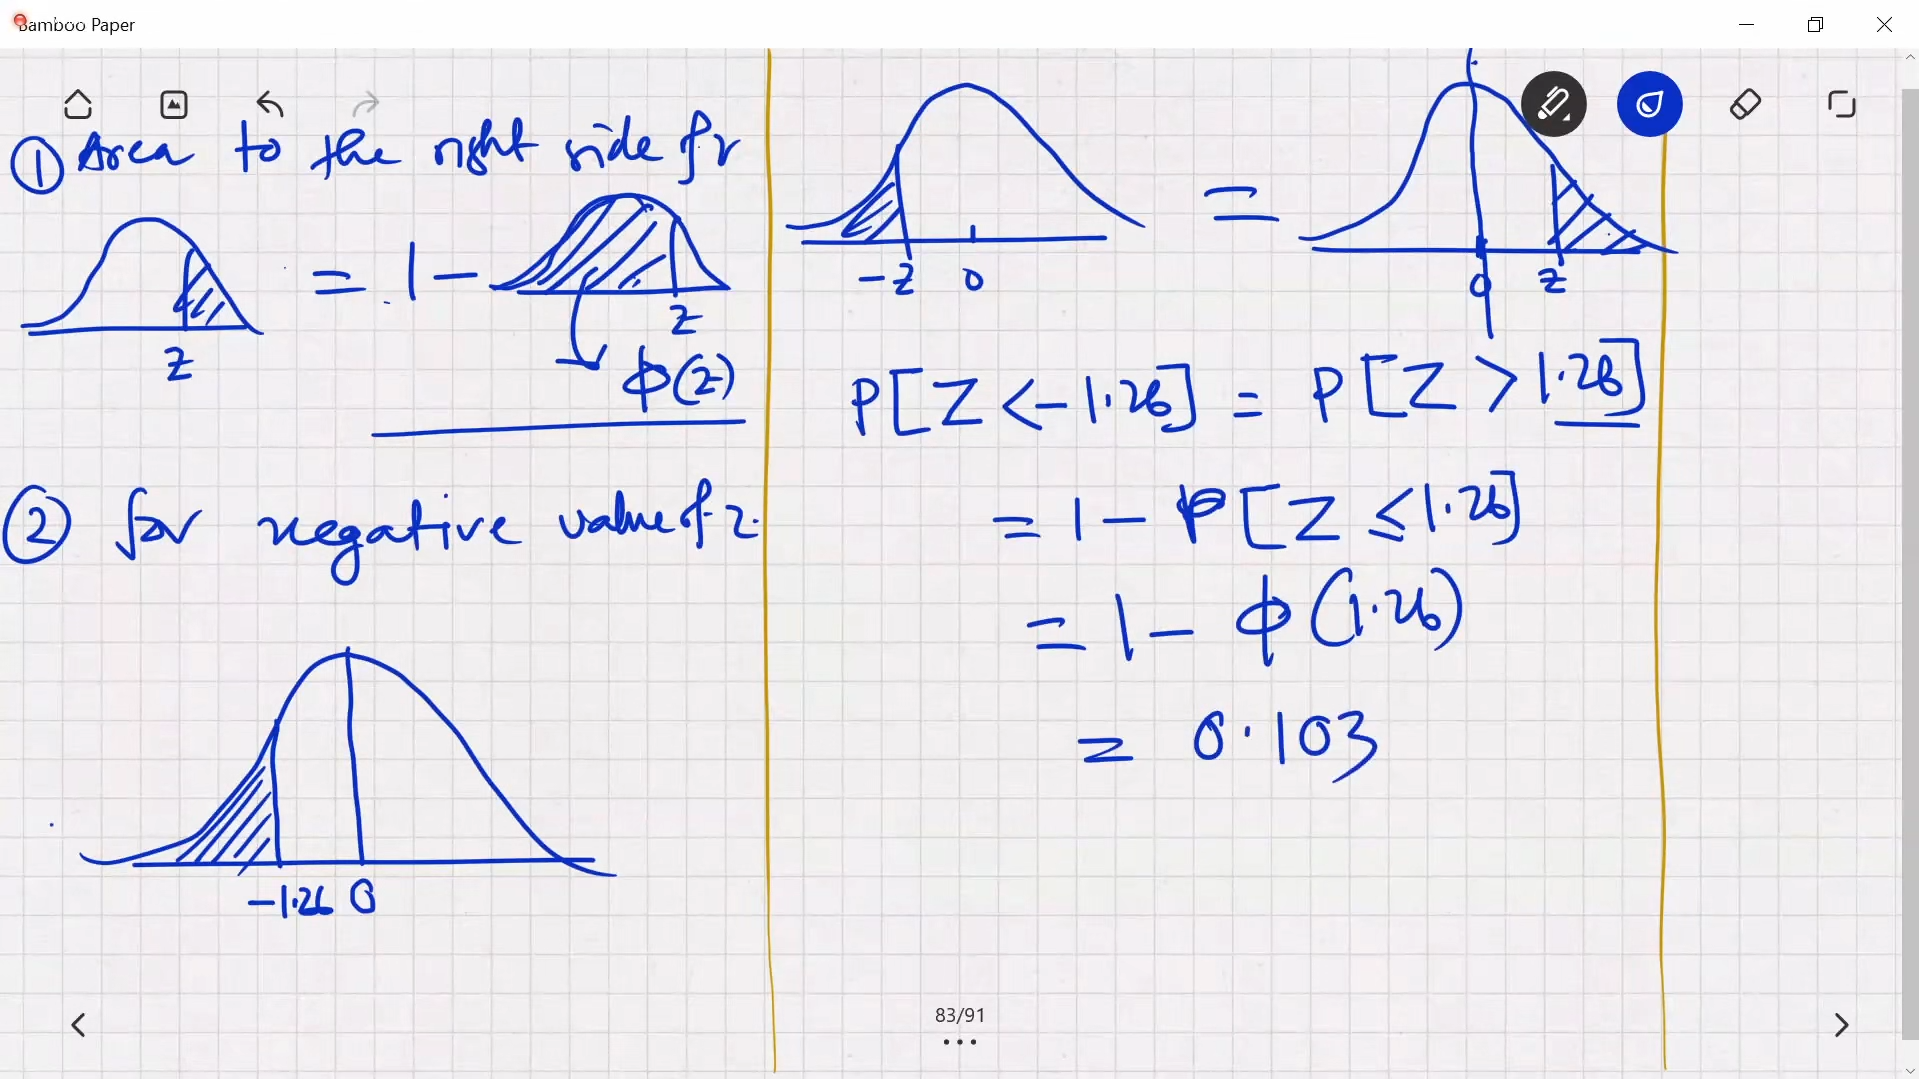 Bamboo Paper
① Area to the right side of z
Z
= 1 −
Z
ϕ(z)
② for negative value of z.
−1.26 0
−Z 0
=
0 Z
P[Z < −1.26] = P[Z > 1.26]
= 1 − P[Z ≤ 1.26]
= 1 − ϕ(1.26)
= 0.103
83/91